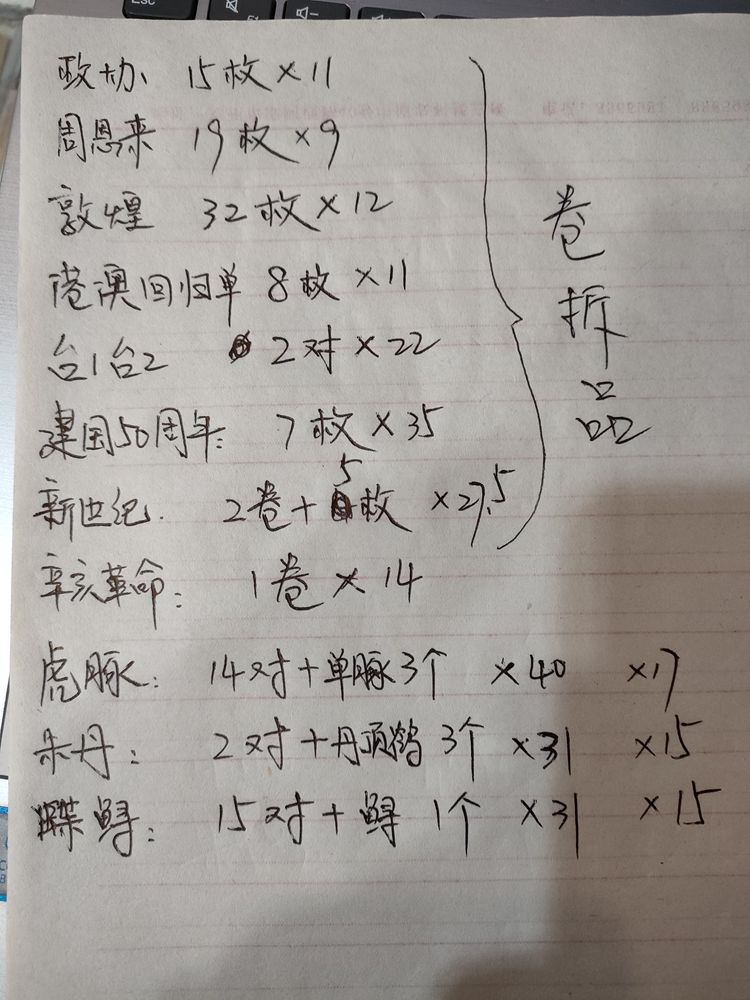 Esc
政协、 15枚×11
周恩来 19枚×9
敦煌 32枚×12
港澳回归单 8枚×11
台1台2 2对×22
建国50周年: 7枚×35
新世纪. 2卷+5枚 ×27.5
卷拆品
辛亥革命: 1卷×14
虎脉: 14对+单脉3个 ×40 ×17
朱丹: 2对+丹顶鹤3个 ×31 ×15
蝶鲟: 15对+鲟1个 ×31 ×15